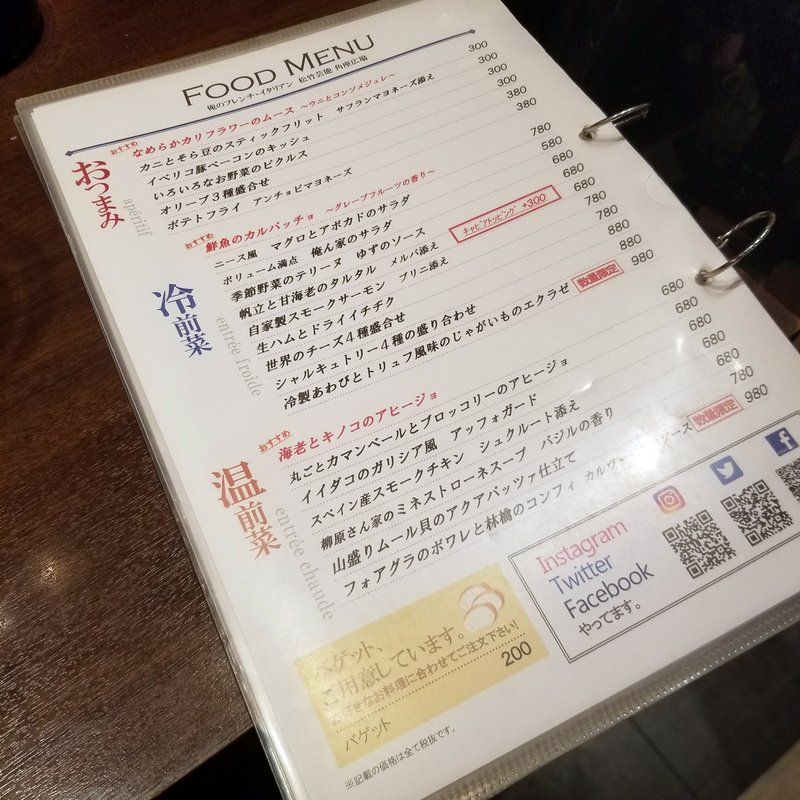 FOOD MENU
俺のフレンチ・イタリアン 松竹芸能 角座広場
おつまみ
apéritif
おすすめ
なめらかカリフラワーのムース ～ウニとコンソメジュレ～ 300
カニとそら豆のスティックフリット サフランマヨネーズ添え 300
イベリコ豚ベーコンのキッシュ 300
いろいろなお野菜のピクルス 380
オリーブ3種盛合せ 380
ポテトフライ アンチョビマヨネーズ
冷前菜
entrée froide
おすすめ
鮮魚のカルパッチョ ～グレープフルーツの香り～ 780
ニース風 マグロとアボカドのサラダ 580
ボリューム満点 俺ん家のサラダ 680
季節野菜のテリーヌ ゆずのソース 680
帆立と甘海老のタルタル メルバ添え キャビアトッピング +300 680
自家製スモークサーモン ブリニ添え 780
生ハムとドライイチヂク 780
世界のチーズ4種盛合せ 880
シャルキュトリー4種の盛り合わせ 880
冷製あわびとトリュフ風味のじゃがいものエクラゼ 数量限定 980
温前菜
entrée chaude
おすすめ
海老とキノコのアヒージョ 680
丸ごとカマンベールとブロッコリーのアヒージョ 680
イイダコのガリシア風 アッフォガード 680
スペイン産スモークチキン シュクルート添え 680
柳原さん家のミネストローネスープ バジルの香り 680
山盛りムール貝のアクアパッツァ仕立て 780
フォアグラのポワレと林檎のコンフィ ソース 数量限定 980
バゲット、
ご用意しています。
お好きなお料理に合わせてご注文下さい!
バゲット 200
Instagram
Twitter
Facebook
やってます。
※記載の価格は全て税抜です。